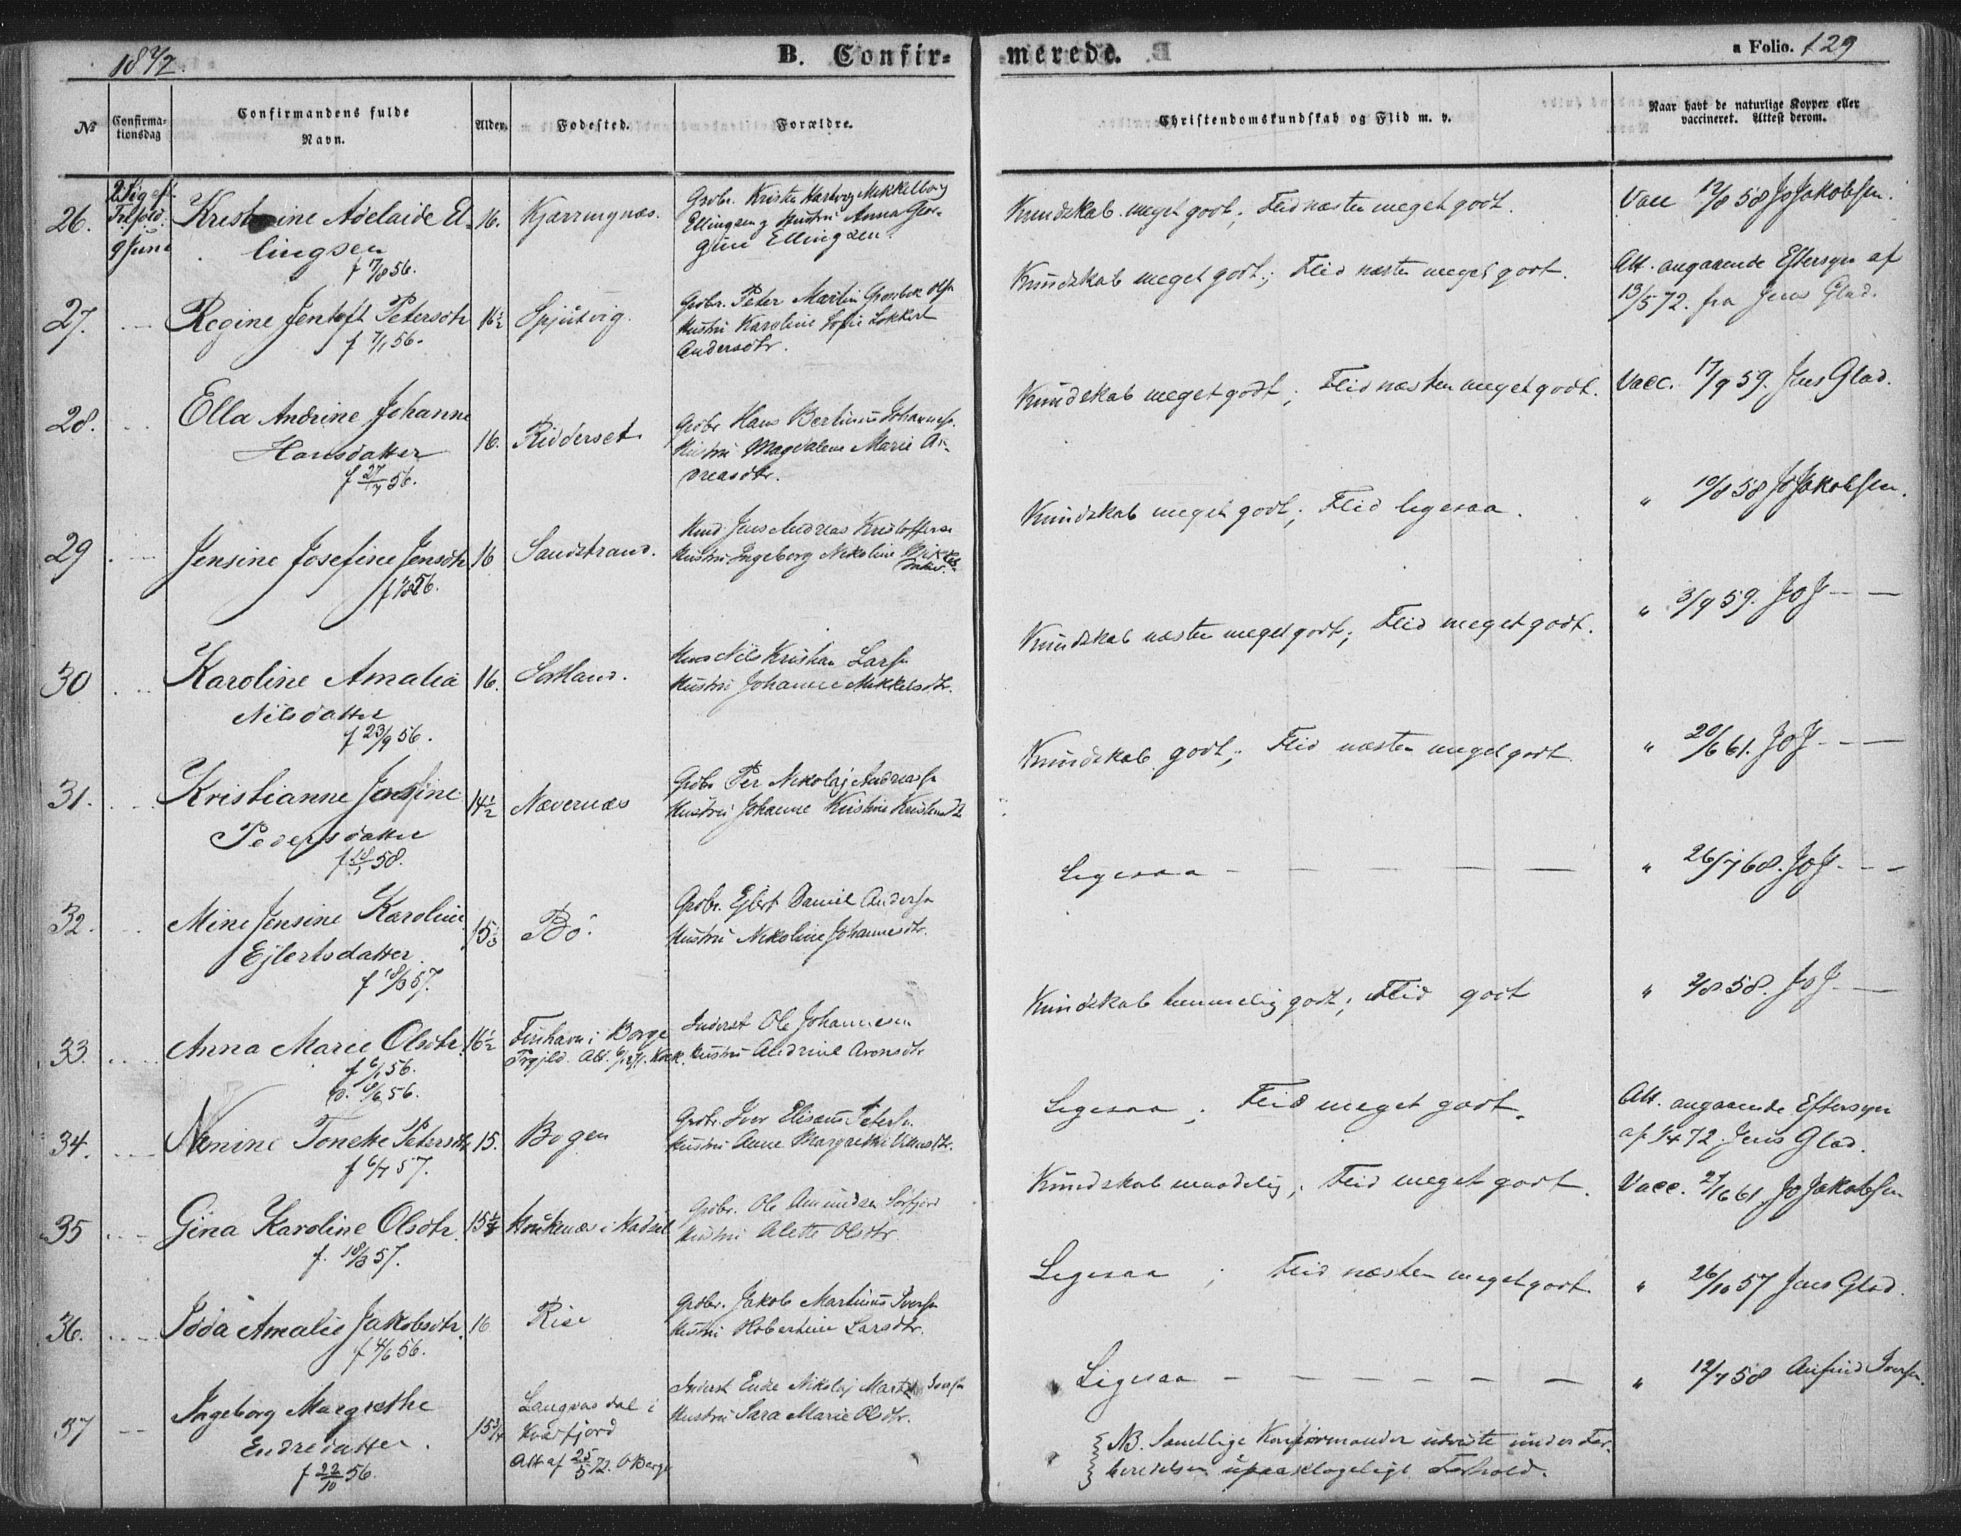 1872.
B. Confir=
merede.
a Folio. 129
No
Confirma-
tionsdag
Confirmandens fulde
Navn.
Alder.
Fødested.
Forældre.
Christendomskundskab og Flid m. v.
Naar havt de naturlige Kopper eller
vaccineret. Attest derom.
26.
9 Juni
Kristine Adelaide El-
lingsen
f 17/8 56.
16.
Kjærringnæs.
Ellingsen Hustru Anna
Ellingsen.
Kundskab meget godt; Flid næsten meget godt.
Vacc 12/8 58 JoJakobsen.
27.
Regine Jentoft Petersdtr
f 7/1 56.
16½
Spjutvig.
Gdbr. Peter Martin Olsn
Hustru Karoline Sofie Lokkert
Andersdtr.
Kundskab meget godt; Flid næsten meget godt.
Att. angaaende Eftersyn af
13/5 72. fra Jens Glad.
28.
Ella Andrine Johanne
Hansdatter
f 27/7 56.
16.
Ridderset
Gdbr Hans Bertinus Johannesn.
Hustru Magdalena Marie An-
dreasdtr.
Kundskab meget godt; Flid næsten meget godt.
Vacc. 17/9 59. Jens Glad.
29
Jensine Josefine Jensdtr
16
Sandstrand.
Jens Andreas Kristoffersn
Hustru Ingeborg Nikoline
Kundskab meget godt; Flid ligesaa.
" 10/8 58 JoJakobsen.
30
Karoline Amalia
Nilsdatter
f 23/9 56.
16.
Sortland.
Nils Kristian Larsn
Hustru Johanne Mikkelsdtr.
Kundskab næsten meget godt; Flid meget godt.
" 3/9 59. JoJ — —
31.
Kristianne Josefine
Pedersdatter
14½
Nævernæs
Gdbr Per Nikolaj Andreasn
Hustru Johanne Kristine
Kundskab godt; Flid næsten meget godt
" 20/6 61. JoJ — —
32.
Mine Jensine Karoline
Ejlertsdatter.
f 18/3 57.
Bø.
Gdbr. Ejlert Daniel Andersn
Hustru Nikoline Johannesdtr.
Ligesaa — — — — — —
" 26/7 68. JoJ — —
33.
Anna Marie Olsdtr.
f 6/1 56.
16½
i Borge
Inderst Ole Johannesen
Hustru Aronsdtr
Kundskab temmelig godt; Flid godt
58. JoJ — —
34.
Petersdtr
f 6/7 57.
15.
Bogen
Gdbr. Iver Elisæus Petersn
Hustru Anne Margrethe
Ligesaa; Flid meget godt.
Att. angaaende Eftersyn
72 Jens Glad.
35
Gina Karoline Olsdtr.
f. 18/3 57.
i Hadsel
Gdbr. Ole Amundsen Sørfjord
Hustru Alette Olsdtr.
Kundskab maadelig; Flid meget godt.
Vacc. 61 JoJakobsen
36.
Amalie Jakobsdtr.
16
Rise
Gdbr. Jakob Martinus Iversn
Hustru Hobertine Larsdtr.
Ligesaa; Flid næsten meget godt
" 26/10 57 Jens Glad.
37
Ingeborg Margrethe
Endredatter.
f 22/10 56.
15¾
Langvasdal i
Kvæfjord
Att af 25/5 72.
Inderst Endre Nikolaj Iversn
Hustru Sara Marie Olsdtr.
Ligesaa — — — — — —
" 12/7 58 Iversn.
NB. Samtlige Konfirmander udviste under For-
beredelsen upaaklageligt Forhold.